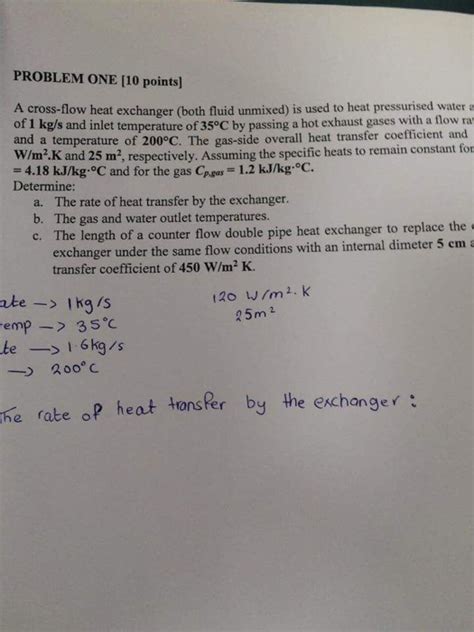 PROBLEM ONE [10 points]
A cross-flow heat exchanger (both fluid unmixed) is used to heat pressurised water
of 1 kg/s and inlet temperature of 35°C by passing a hot exhaust gases with a flow
and a temperature of 200°C. The gas-side overall heat transfer coefficient and
W/m².K and 25 m², respectively. Assuming the specific heats to remain constant for
= 4.18 kJ/kg·°C and for the gas Cp,gas = 1.2 kJ/kg·°C.
Determine:
a. The rate of heat transfer by the exchanger.
b. The gas and water outlet temperatures.
c. The length of a counter flow double pipe heat exchanger to replace the
exchanger under the same flow conditions with an internal dimeter 5 cm
transfer coefficient of 450 W/m² K.
ate —> 1kg/s
120 W/m². K
emp —> 35°C
25m²
te —> 1.6kg/s
—> 200°C
The rate of heat transfer by the exchanger :